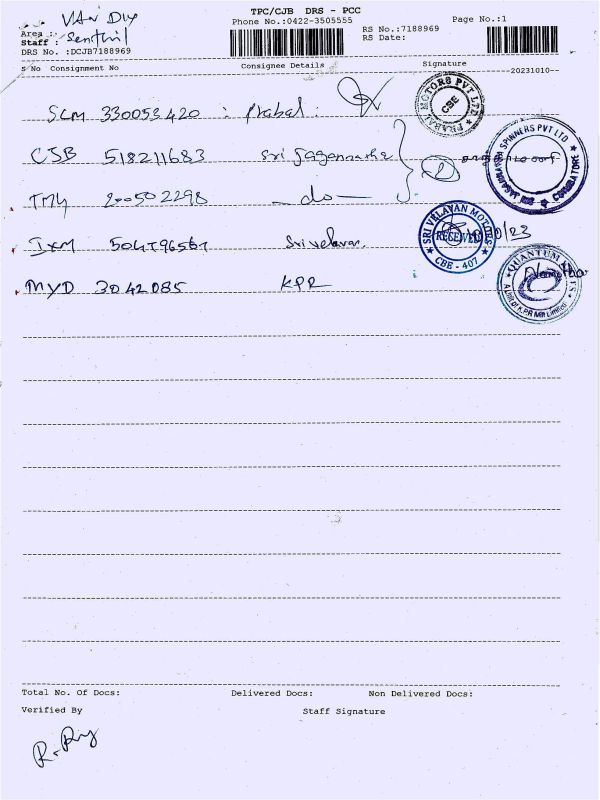 TPC/CJB DRS - PCC
Phone No.:0422-3505555
Page No.:1
VAN Dly
Area :
Staff : Senthil
DRS No. :DCJB7188969
RS No.:7188969
RS Date:
S No Consignment No Consignee Details Signature
20231010
SCM 330053420 : Prabal.
PRABAL MOTORS PVT LTD
CBE
CJB 518211683 Sri Jagannatha
SPINNERS PVT LTD
COIMBATORE
TMY 200502298 —do—
IXM
SRI VELAYAN MOTORS
RECEIVED
CBE - 407
10/23
MYD 3042085 KPR
QUANTUM
A Unit of K.P.R Mill Limited
Total No. Of Docs: Delivered Docs: Non Delivered Docs:
Verified By Staff Signature